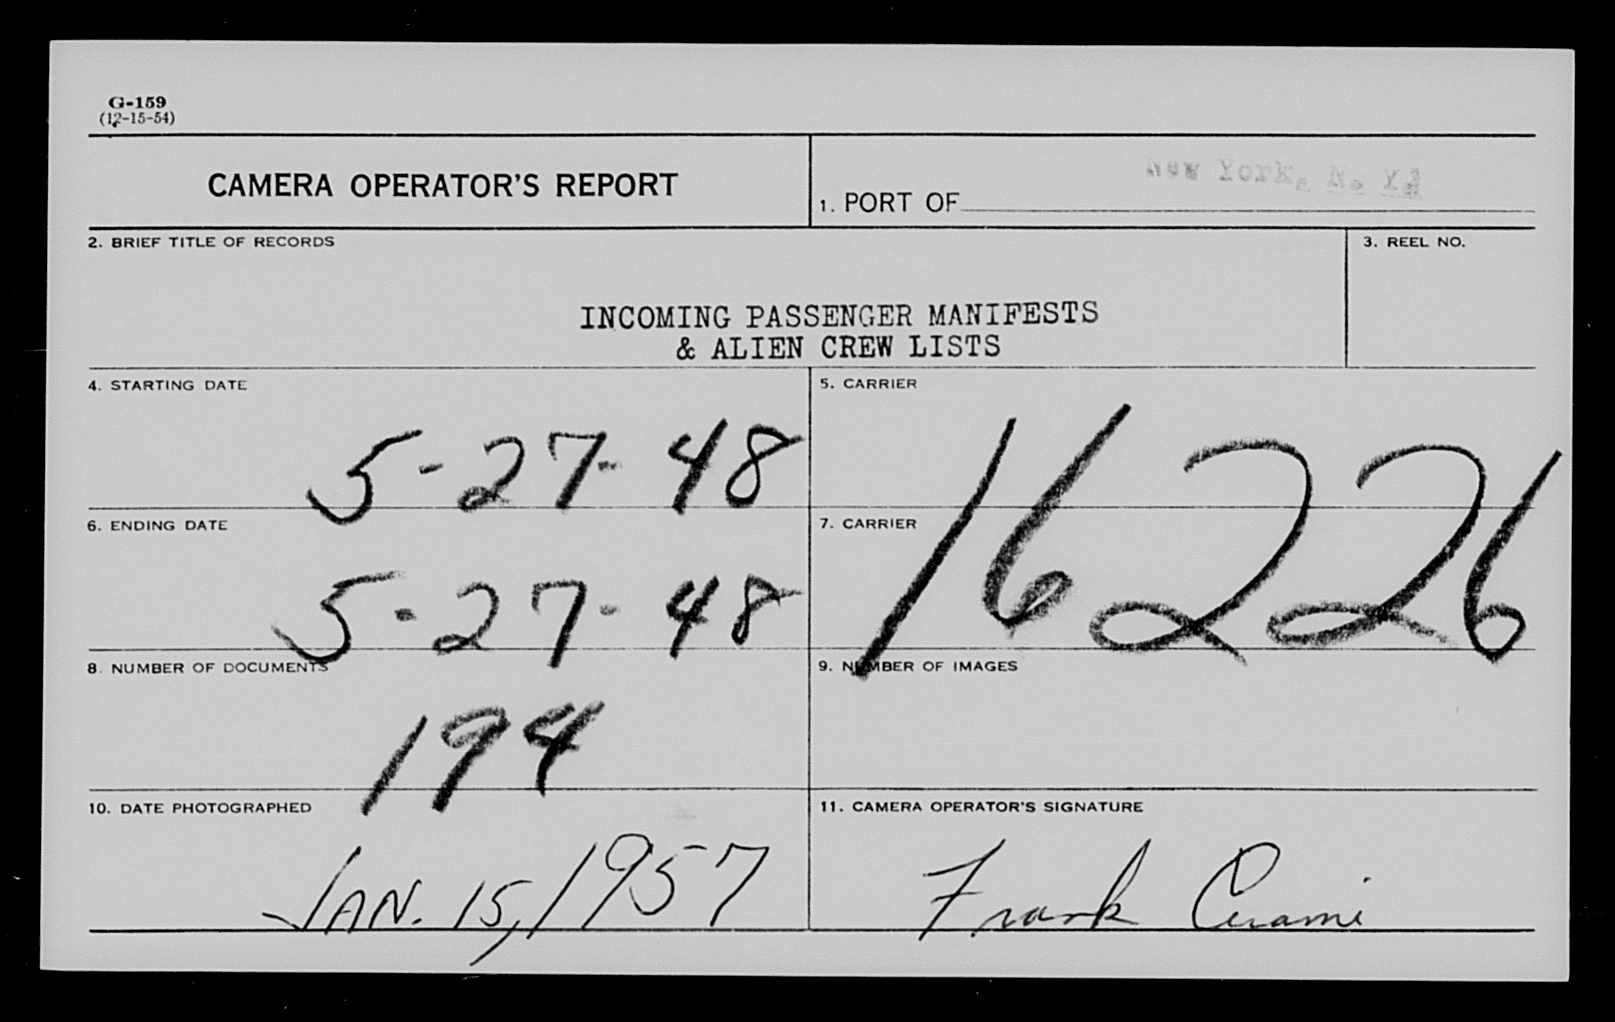 G-159
(12-15-54)
CAMERA OPERATOR'S REPORT
1. PORT OF New York, N. Y.
2. BRIEF TITLE OF RECORDS
3. REEL NO.
INCOMING PASSENGER MANIFESTS
& ALIEN CREW LISTS
4. STARTING DATE
5-27-48
5. CARRIER
6. ENDING DATE
5-27-48
7. CARRIER
16226
8. NUMBER OF DOCUMENTS
194
9. NUMBER OF IMAGES
10. DATE PHOTOGRAPHED
JAN. 15, 1957
11. CAMERA OPERATOR'S SIGNATURE
Frank Cerami